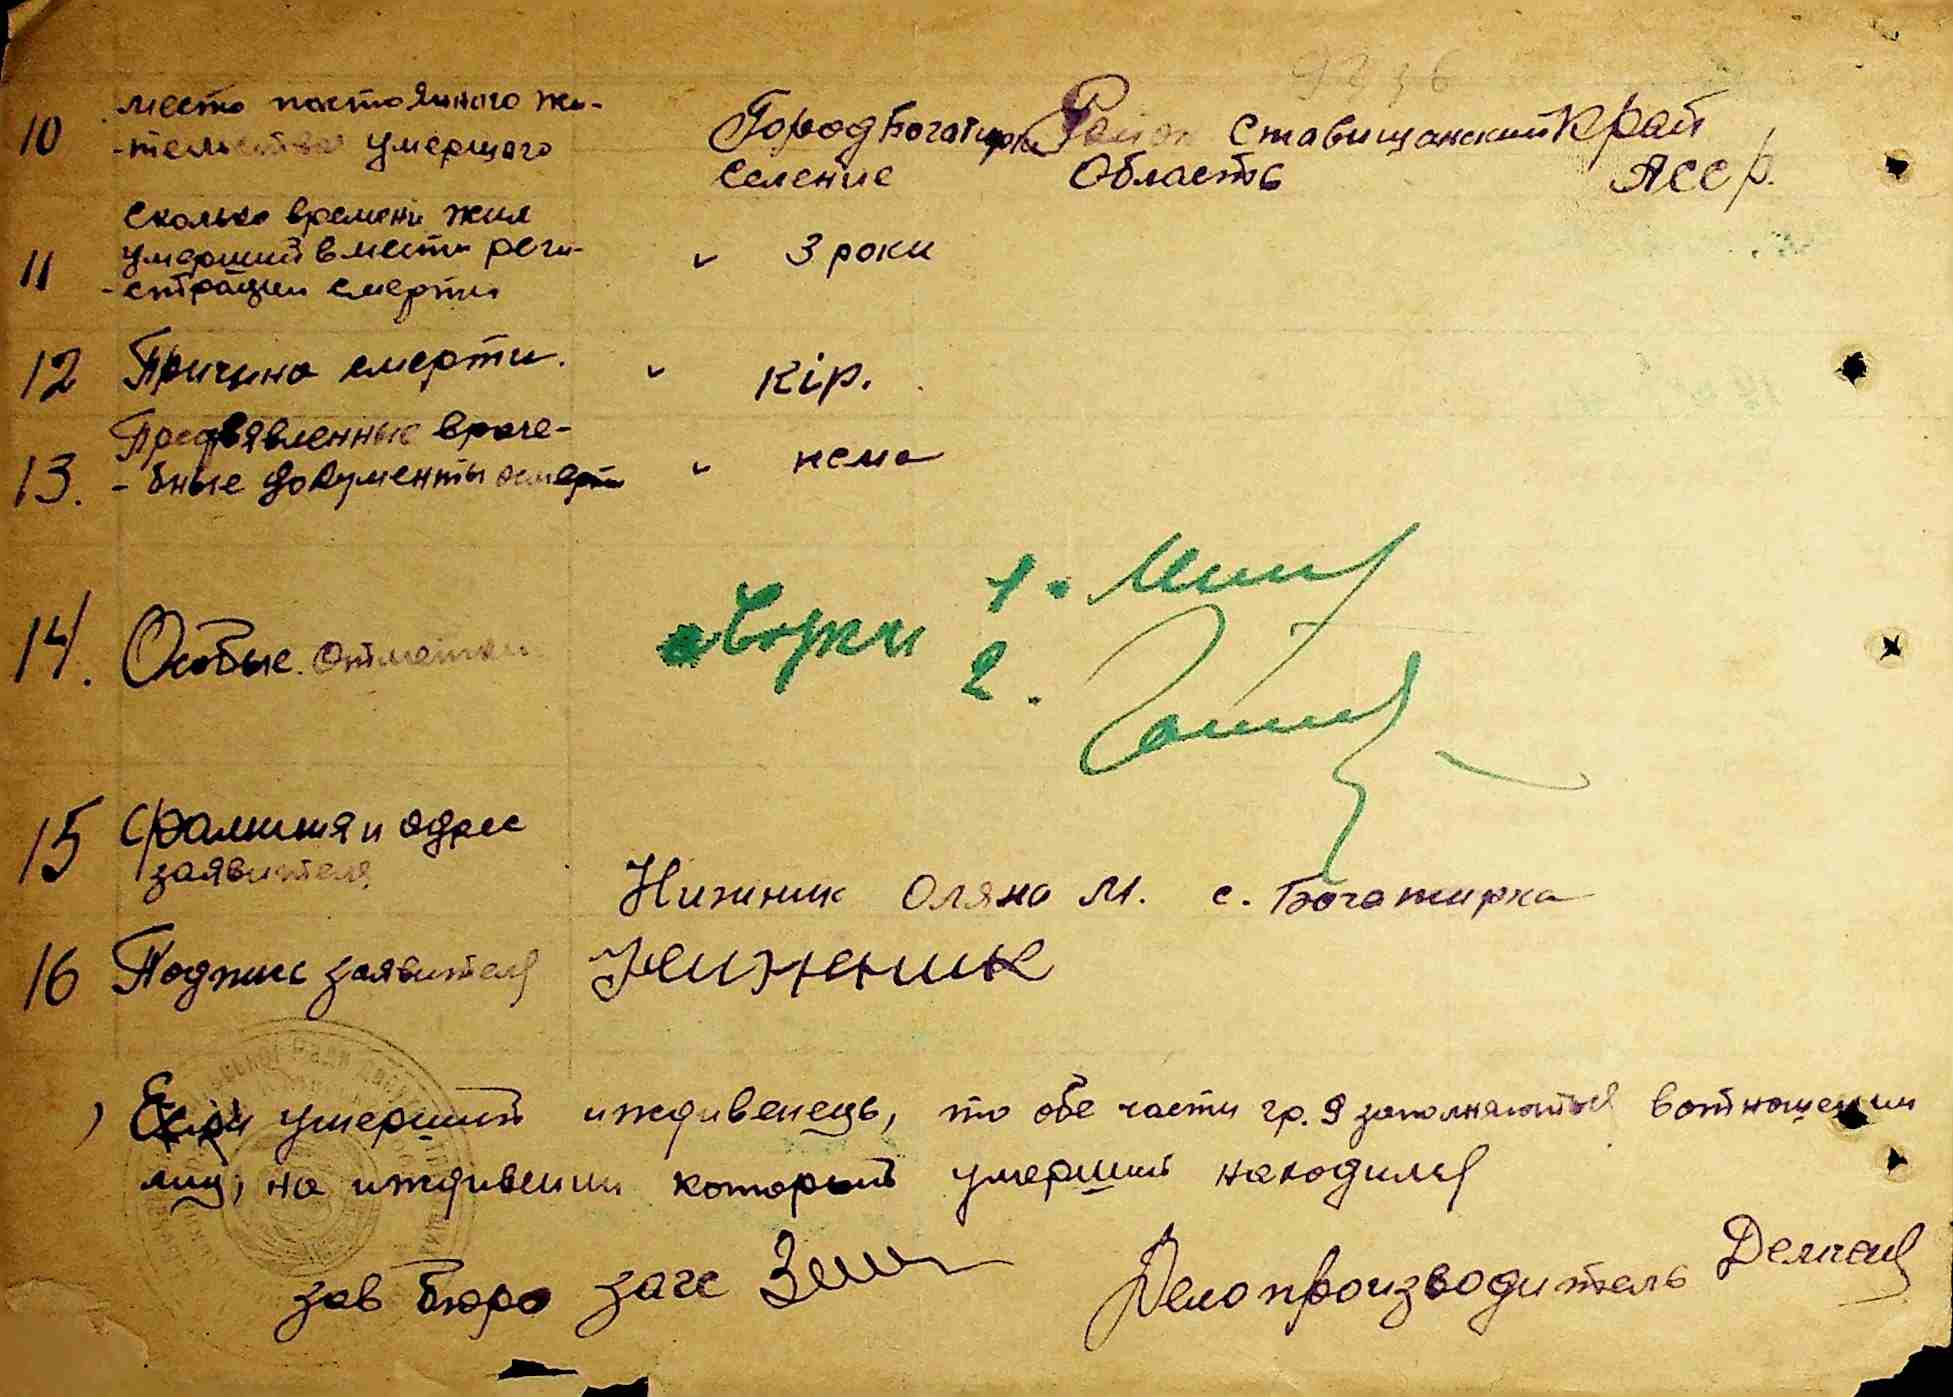 10 место постоянного жи-
-тельства умершого
Город Богатирка Район Ставищанский Край
Селение Область АССР.
11 сколько времени жил
умерший в месте реги-
-страции смерти " 3 роки
12 Причина смерти. " кір.
13. Предъявленные враче-
-бные документы о смерти " нема
14. Особые отметки
1.
2.
15 Фамилия и адрес
заявителя
Нижник Оляна М. с. Богатирка
16 Подпис заявителя Нижник
) Если умерший иждивенець, то обе части гр. 9 заполняются в отношении
лиц, на иждивении который умерший находился
зав бюро загс
Делопроизводитель